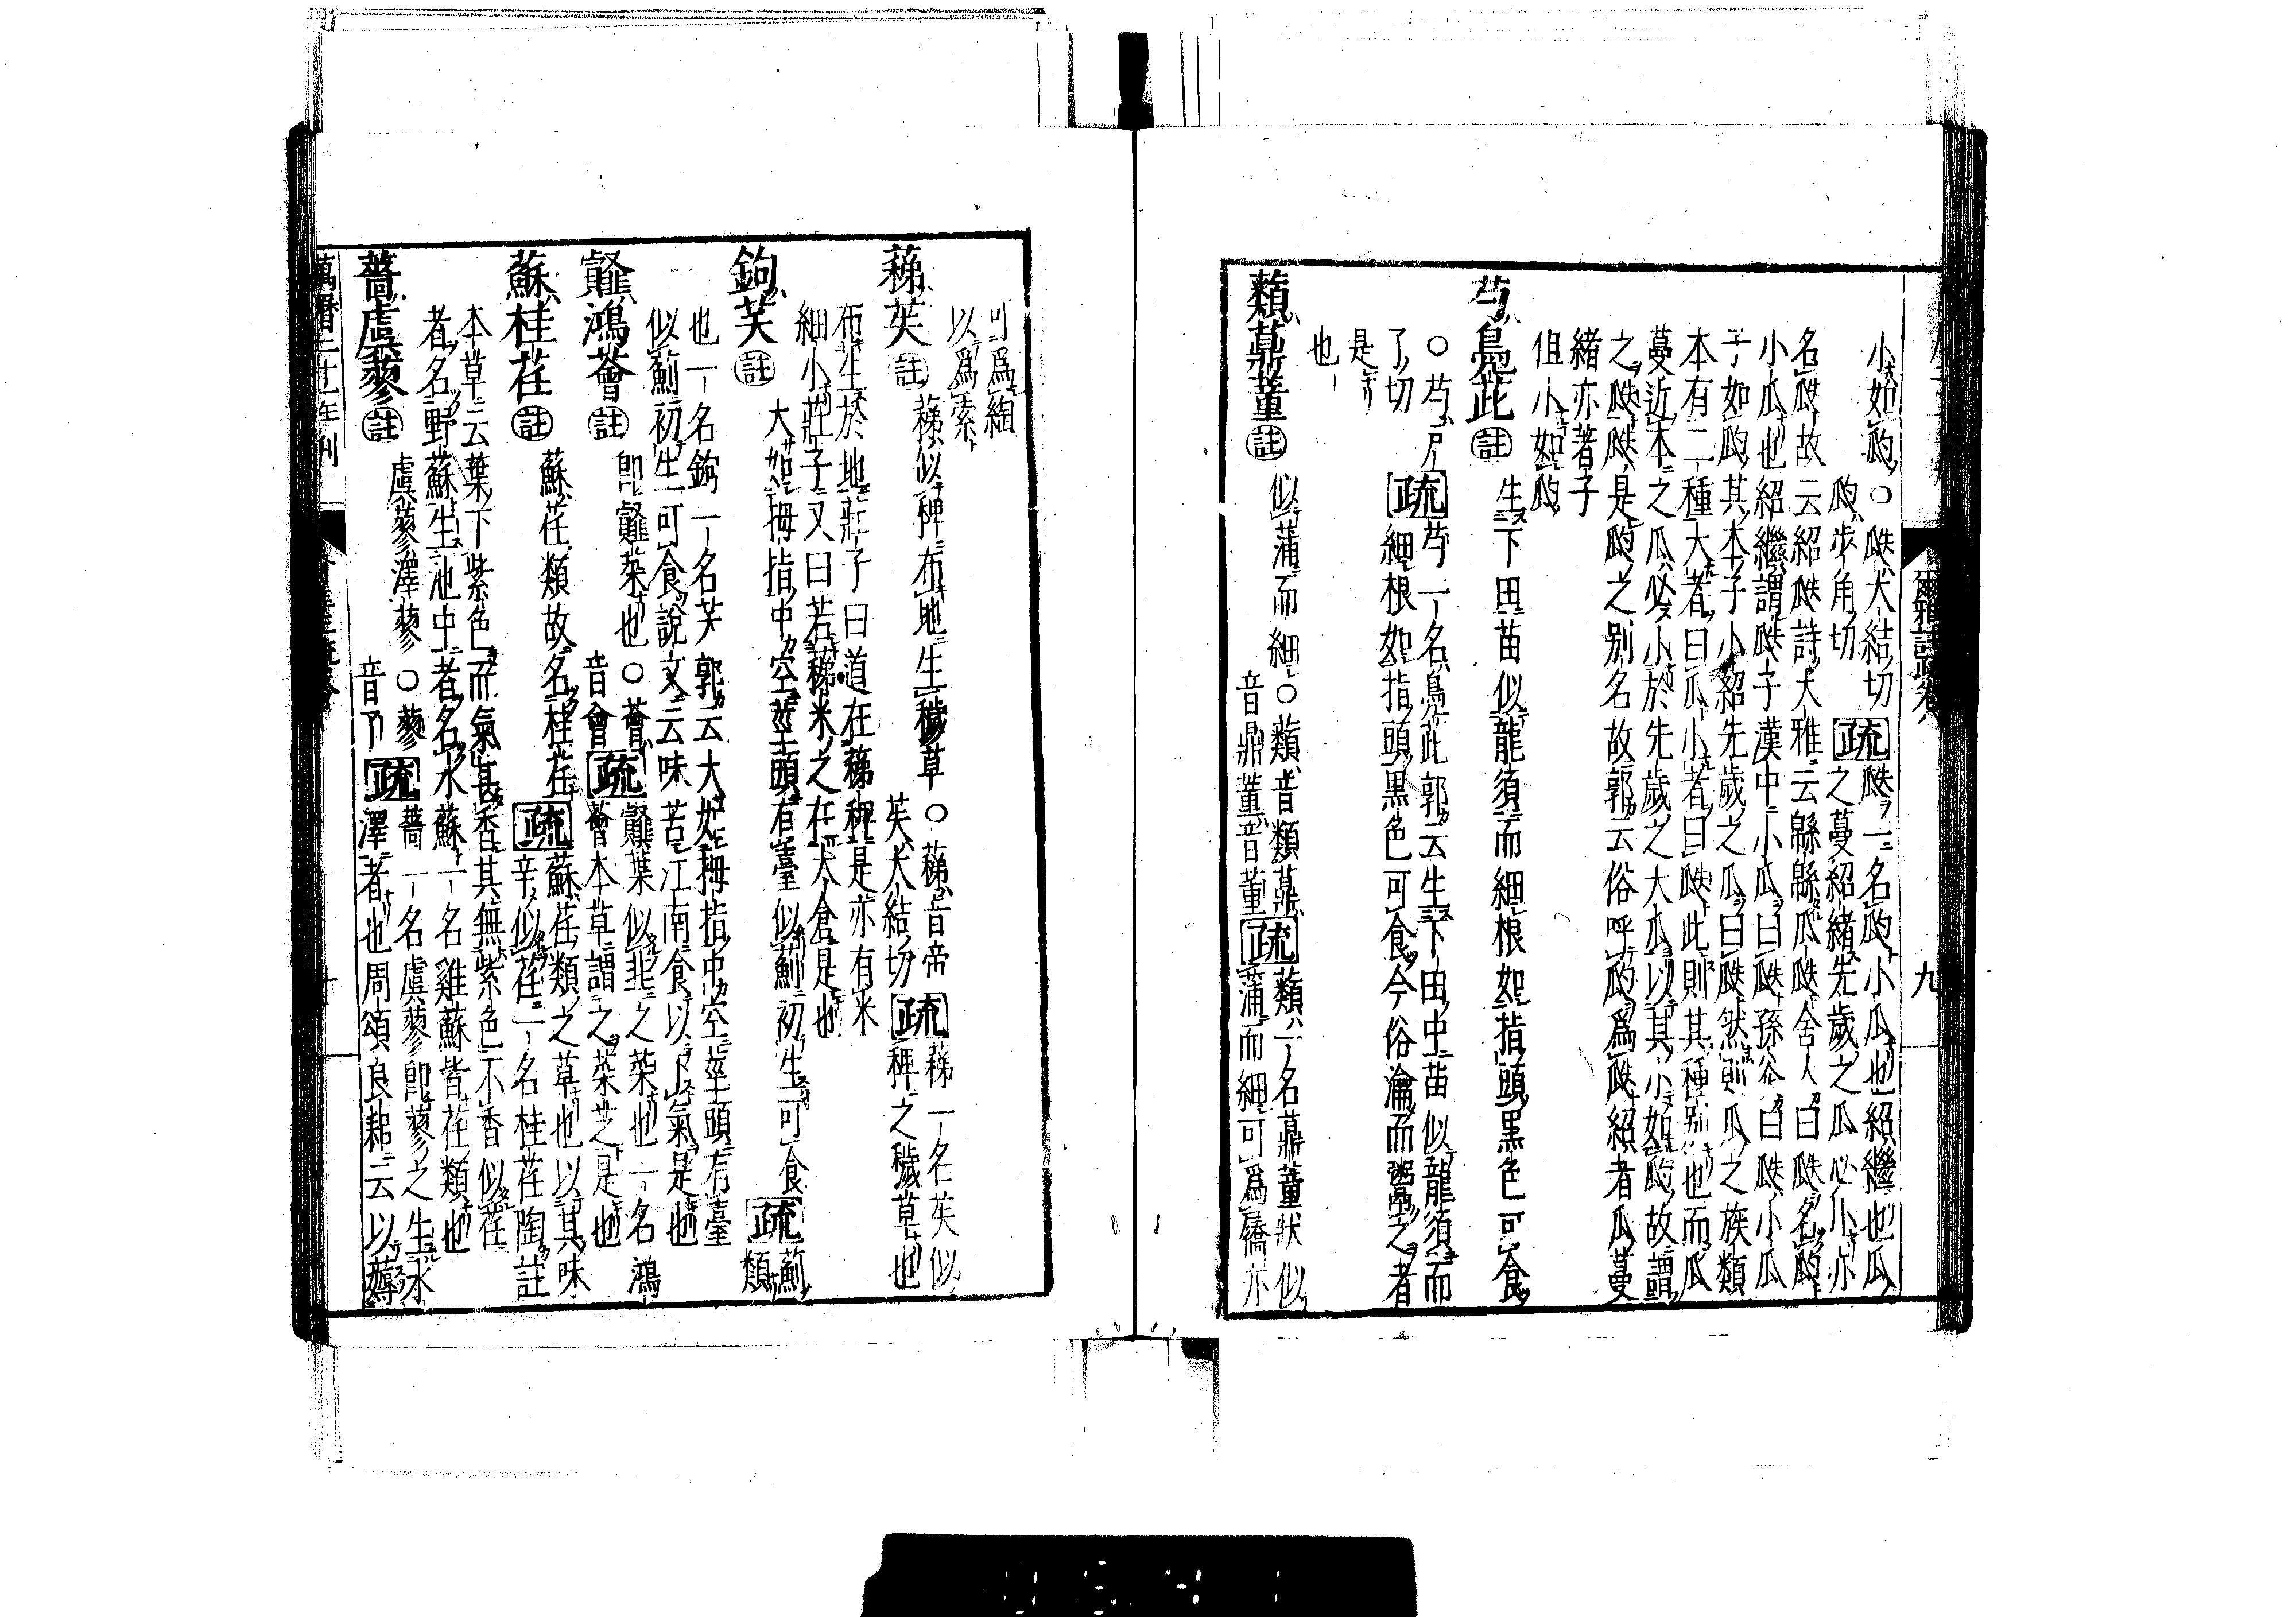 小如瓝○瓞犬結切
瓝步角切疏瓞一名瓝小瓜也紹繼也瓜
之蔓紹緒先歲之瓜必小亦
名瓞故云紹瓞詩大雅云緜緜瓜瓞舍人曰瓞名瓝
小瓜也紹繼謂瓞子漢中小瓜曰瓞孫炎曰瓞小瓜
子如瓝其本子小紹先歲之瓜曰瓞然則瓜之族類
本有二種大者曰瓜小者曰瓞此則其種別也而瓜
蔓近本之瓜必小於先歲之大瓜以其小如瓝故謂
之瓞瓞是瓝之別名故郭云俗呼瓝爲瓞紹者瓜蔓
緒亦著子
但小如瓝
芍鳧茈註生下田苗似龍須而細根如指頭黑色可食
○芍戶
了切疏芍一名鳧茈郭云生下田中苗似龍須而
細根如指頭黑色可食今俗瀹而鬻之者
是
也
蘱薡蕫註似蒲而細○蘱音類薡
音鼎蕫音董疏蘱一名薡蕫狀似
蒲而細可爲屩亦
爾雅註疏卷八
九
可爲綯
以爲索
蕛苵註蕛似稗布地生穢草○蕛音帝
苵大結切疏蕛一名苵似
稗之穢草也
布生於地莊子曰道在蕛稗是亦有米
細小莊子又曰若蕛米之在大倉是也
鉤芺註大如拇指中空莖頭有臺似薊初生可食疏薊
類
也一名鉤一名芺郭云大如拇指中空莖頭有臺
似薊初生可食說文云味苦江南食以下氣是也
䪥鴻薈註即䪥菜也○薈
音會疏䪥葉似韭之菜也一名鴻
薈本草謂之菜芝是也
蘇桂荏註蘇荏類故名桂荏疏蘇荏類之草也以其味
辛似荏一名桂荏陶註
本草云葉下紫色而氣甚香其無紫色不香似荏
者名野蘇生池中者名水蘇一名雞蘇皆荏類也
薔虞蓼註虞蓼澤蓼○蓼
音了疏薔一名虞蓼即蓼之生水
澤者也周頌良耜云以薅
萬曆二十一年刊